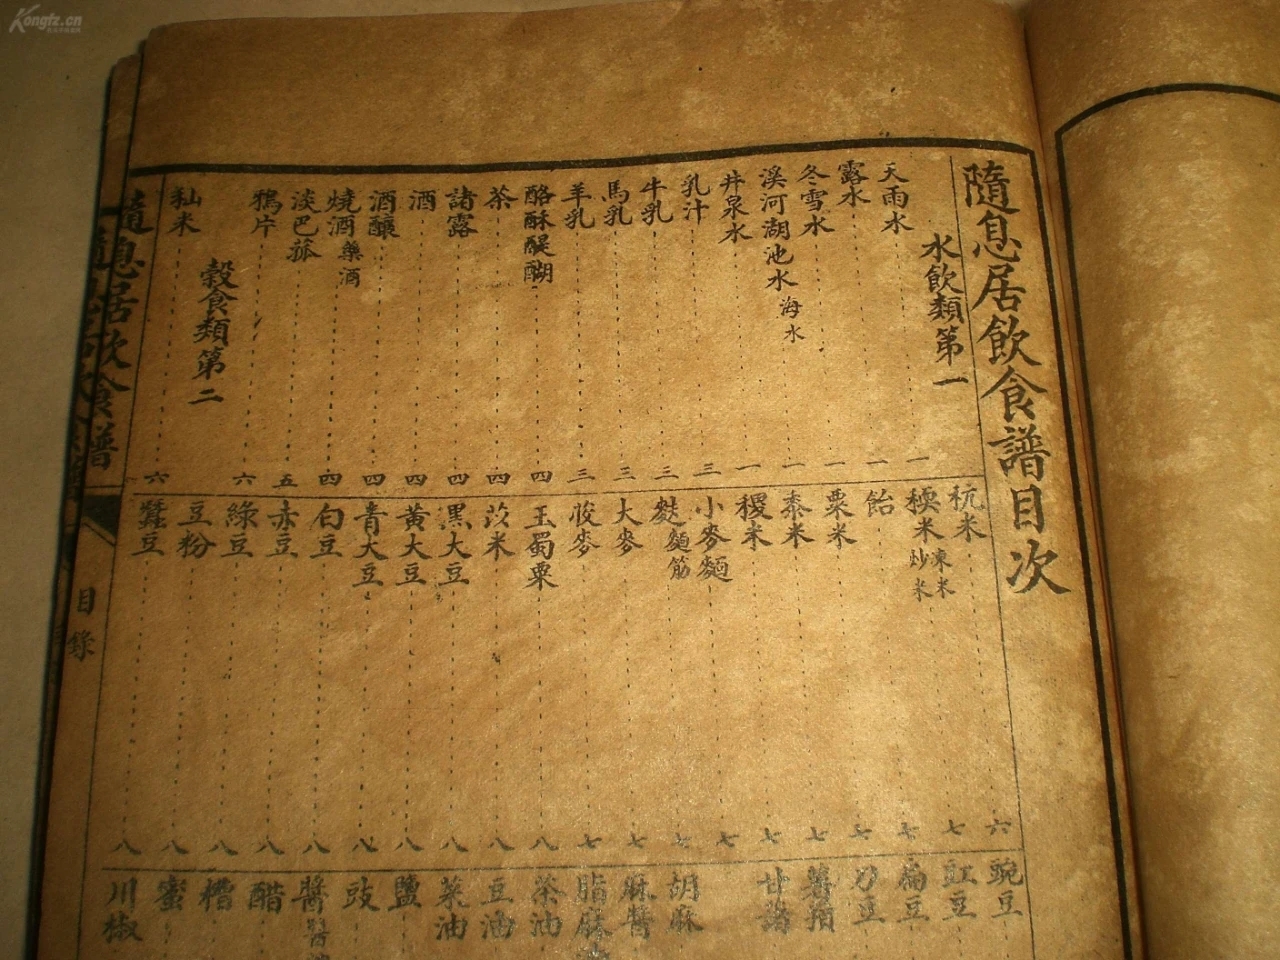 Kongfz.cn
隨息居飲食譜目次
水飲類第一
天雨水 一
露水 一
冬雪水 一
溪河湖池水 海水 一
井泉水 一
乳汁 三
牛乳 三
馬乳 三
羊乳 三
酪酥醍醐 四
茶 四
諸露 四
酒 四
酒釀 四
燒酒 藥酒 四
淡巴菰 五
鴉片 六
穀食類第二
籼米 六
秔米 六
稬米 凍米 炒米 七
飴 七
粟米 七
黍米 七
稷米 七
小麥麵 七
麩 麵筋 七
大麥 七
䅟麥 七
玉蜀粟 八
苡米 八
黑大豆 八
黃大豆 八
青大豆 八
白豆 八
赤豆 八
綠豆 八
豆粉 八
蠶豆 八
豌豆
豇豆
扁豆
刀豆
薯蕷
甘諸
胡麻
麻醬
脂麻油
茶油
豆油
菜油
鹽
豉
醬
醋
糟
蜜
川椒
隨息居飲食譜
目錄